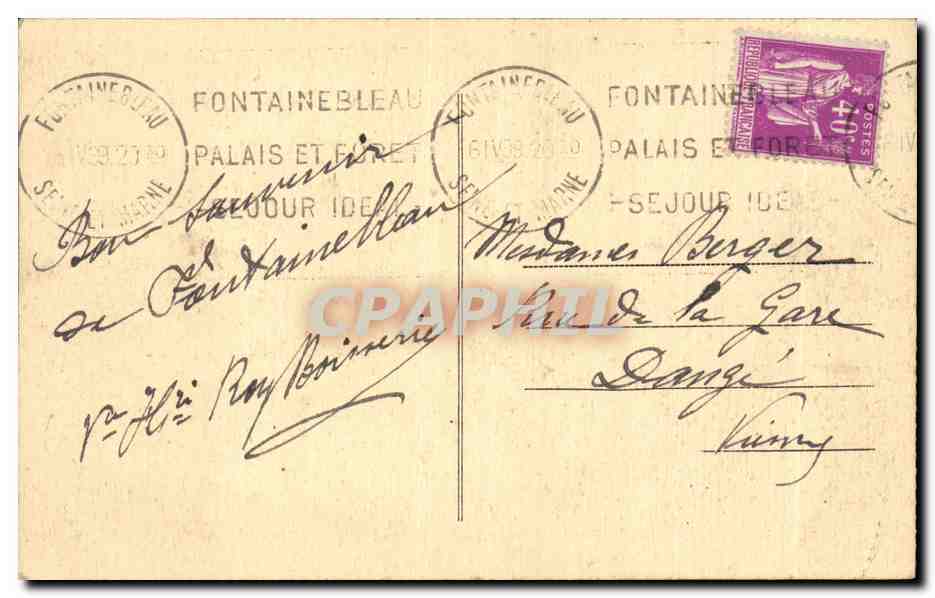 FONTAINEBLEAU
SEINE ET MARNE
6 IV 39.20
FONTAINEBLEAU
PALAIS ET FORET
SEJOUR IDEAL
FONTAINEBLEAU
SEINE ET MARNE
6 IV 39.20
FONTAINEBLEAU
PALAIS ET FORET
-SEJOUR IDEAL-
REPUBLIQUE FRANCAISE
40c
POSTES
Bon souvenir
de Fontainebleau
Vve Hri Roy Boisserie
Mesdames Berger
Rue de la Gare
Dangé
Vienne
CPAPHIL